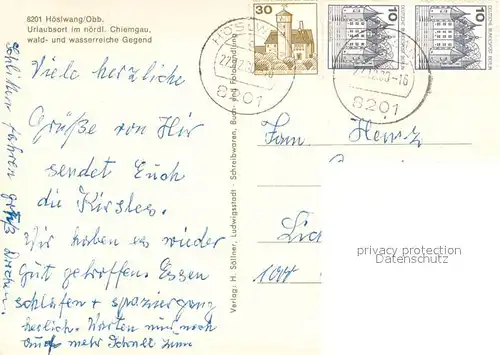 8201 Höslwang/Obb.
Urlaubsort im nördl. Chiemgau,
wald- und wasserreiche Gegend
Viele herzliche
Grüße von Hir
sendet Euch
die Kirstes.
Wir haben es wieder
Gut getroffen. Essen
schlafen + spaziergang
herlich. Warten nur noch
auf mehr Schnee zum
Schlitten fahren
30
10
10
8201
8201
Verlag: H. Söllner, Ludwigsstadt - Schreibwaren, Buch- und Fotohandlung
Fam. Heinz
privacy protection
Datenschutz